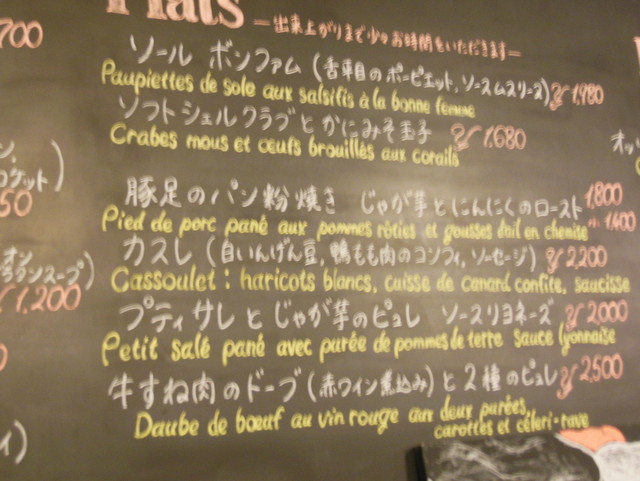 Plats
ー出来上がりまで少々お時間をいただきますー
700
ソール ボンファム (舌平目のポーピエット、ソースムスリーヌ) 1,980
Paupiettes de sole aux salsifis à la bonne femme
ソフトシェルクラブとかにみそ玉子 1,680
Crabes mous et œufs brouillés aux corails
ケット)
50
豚足のパン粉焼き じゃが芋とにんにくのロースト 1,800
Pied de porc pané aux pommes rôties et gousses d'ail en chemise 1,400
カスレ (白いんげん豆、鴨もも肉のコンフィ、ソーセージ) 2,200
Cassoulet : haricots blancs, cuisse de canard confite, saucisse
ラウンスープ)
1,200
プティサレとじゃが芋のピュレ ソースリヨネーズ 2,000
Petit salé pané avec purée de pommes de terre sauce lyonnaise
牛すね肉のドーブ (赤ワイン煮込み) と2種のピュレ 2,500
Daube de bœuf au vin rouge aux deux purées,
carottes et céleri-rave